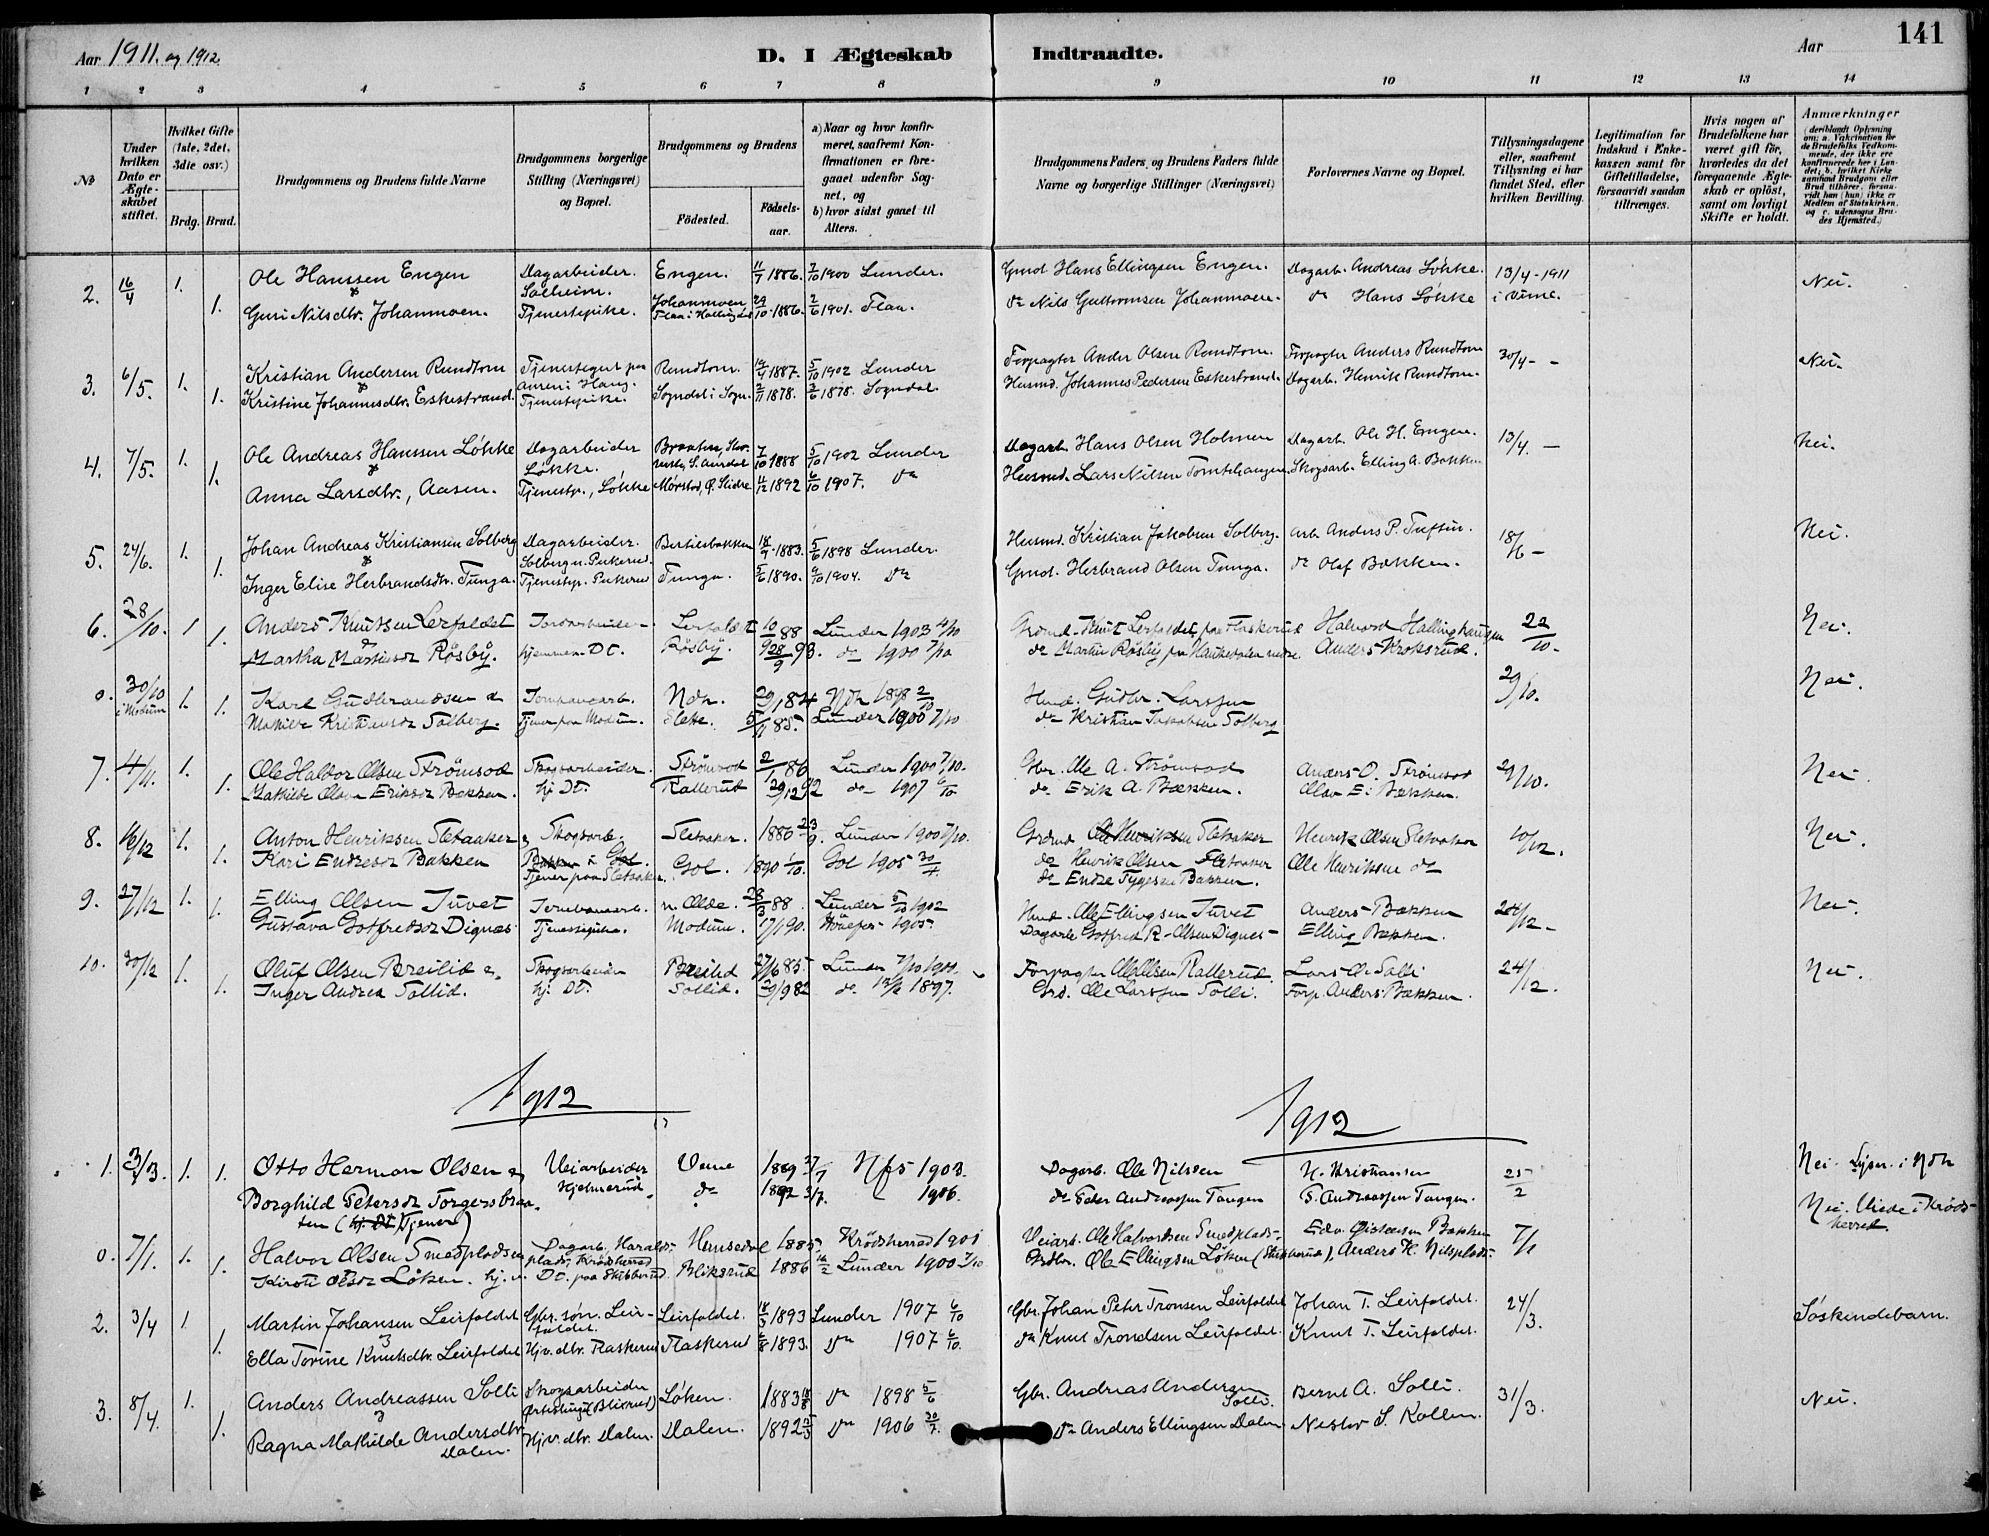 Aar 1911. og 1912.
D. I Ægteskab Indtraadte.
Aar
141
1 2 3 4 5 6 7 8 9 10 11 12 13 14
No
Under hvilken Dato er Ægteskabet stiftet.
Hvilket Gifte (1ste, 2det, 3die osv.)
Brdg. Brud.
Brudgommens og Brudens fulde Navne
Brudgommens borgerlige Stilling (Næringsvei) og Bopæl.
Brudgommens og Brudens
Födested.
Födselsaar.
a) Naar og hvor konfirmeret, saafremt Konfirmationen er foregaaet udenfor Sognet, og
b) hvor sidst gaaet til Alters.
Brudgommens Faders og Brudens Faders fulde Navne og borgerlige Stillinger (Næringsvei)
Forlovernes Navne og Bopæl.
Tillysningsdagene eller, saafremt Tillysning ei har fundet Sted, efter hvilken Bevilling.
Legitimation for Indskud i Enkekassen samt for Giftetilladelse, forsaavidt saadan tiltrænges.
Hvis nogen af Brudefolkene har været gift för, hvorledes da det foregaaende Ægteskab er oplöst, samt om lovligt Skifte er holdt.
Anmærkninger
(deriblandt Oplysning om: a. Vakcination for de Brudefolks Vedkommende, der ikke ere konfirmerede her i Landet; b. hvilket Kirkesamfund Brudgom eller Brud tilhörer, forsaavidt han (hun) ikke er Medlem af Statskirken, og c. udensogns Brudes Hjemsted.)
2. 16/4 1. Ole Hanssen Engen Dagarbeider. Solheim. Engen. 11/7 1886. 7/10 1900 Lunder. Gmd Hans Ellingsen Engen. Dagarb. Andreas Løkke. 13/4-1911 Nei.
& 1. Guri Nilsdtr. Johanmoen. Tjenestepike. Johanmoen Flaa i Hallingdal 29/10 1886. 2/6 1901. Flaa. do Nils Guttormsen Johanmoen. do Hans Løkke
3. 6/5. 1. Kristian Andersen Rundtom Tjenestegut paa Rundtom. 19/4 1887. 5/10 1902 Lunder Forpagter Ander Olsen Rundtom. Forpagter Anders Rundtom 30/4 - - Nei.
& 1. Kristine Johannesdtr. Eskestrand. Tjenestepike. Sogndal i Sogn. 2/11 1878. 1878. Sogndal. Husmd. Johannes Pedersen Eskestrand. Dagarb. Henrik Rundtom.
4. 7/5. 1. Ole Andreas Hanssen Løkke Dagarbeider Løkke. S. Aurdal 7/10 1888 5/10 1902 Lunder Dagarb. Hans Olsen Holmen Dagarb. Ole H. Engen. 13/4. - Nei.
& 1. Anna Larsdtr., Aasen. Tjenestp., Løkke Mørstad, Ø. Slidre 11/12 1892 6/10 1907. do Husmd. Lars Nilsen Tomtehaugen Skogsarb. Elling A. Bakken
5. 24/6. 1. Johan Andreas Kristiansen Solberg Dagarbeider. Solberg u. Pukerud. Bertilsbakken 18/9 1883. 5/6 1898 Lunder. Husmd. Kristian Jakobsen Solberg. Arb. Anders P. Tuftin. 18/6 - Nei.
& 1. Inger Elise Herbrandsdtr. Tunga. Tjenestep. Pukerud Tunga. 5/6 1890. 9/10 1904. do Gmd. Herbrand Olsen Tunga. do Olaf Bækken.
6. 28/10. 1 Anders Knutsen Lerfaldet Lerfaldet 10/10 88 Lunder 1903 4/10 Grdmd. Knut Lerfaldet paa Flaskerud Halvord Hallinghaugen 22/10. Nei.
1. Martha Martinsdr Røsby. hjemmev. DC. Røsby. 28/9 93. do 1900 7/10 do Martin Røsby Anders Kroksrud.
0. 30/10 i Modum 1. Karl Gudbrandsen & Jernbanearb. Ndr. 29/1 84 Ndh 1898 2/10 Hmd. Gudbr. Larssen 29/10. Nei.
1. Mathilde Kristiansdr Solberg. Tjener paa Modum. Slette. 5/11 85. Lunder 1900 7/10 do Kristian Jakobsen Solberg
7. 4/11. 1. Ole Halvor Olsen Strømsod Skogsarbeider. Strømsod 2/1 86 Lunder 1900 7/10. Gbr. Ole A. Strømsod Anders O. Strømsod 29/10. Nei.
1. Mathilde Olava Eriksdr Bækken. hj. DC. Rallerud 29/12 92 do 1907 6/10 do Erik A. Bækken. Olav E. Bækken.
8. 16/12 1. Anton Henriksen Sletaaker & Skogsarb. Sletaaker. 1880 23/9. Lunder 1900 7/10. Grdmd Ole Henriksen Sletaaker Henrik Olsen Sletaaker 10/12. Nei.
1. Kari Endresdr Bakken Bakken i Gol. Tjener paa Sletaaker. Gol. 1890 1/10. Gol 1905 30/4. do Henrik Olsen Sletaaker Ole Henriksen do
do Endre Bakken.
9. 27/12 1. Elling Olsen Juvet Jernbanearb. 28/3 88. Lunder 5/10 1902 Hmd. Ole Ellingsen Juvet Anders Bækken 24/12 - Nei.
1. Gustava Gotfredsdr Dignæs Tjenestepike. Modum. 1/1 90. Hønefos 1905. Dagarb. Gotfred R. Olsen Dignes Elling Bækken.
10. 30/12 1. Oluf Olsen Breilid & Skogsarbeider Breilid 27/6 85. Lunder 7/10 1900. Forpagter Ole Olsen Rallerud. Lars O. Solli 24/12. Nei.
1. Inger Andrea Sollid. hj. DC. Sollid. 29/9 82 do 1897. Grd. Ole Larssen Solli. Forp. Anders Bækken.
1912 1912
1. 3/3. 1. 1. Otto Herman Olsen & Veiarbeider Hjelmerud. Veme 1889 Hfs 1903. Dagarb. Ole Nilssen H. Kristiansen 25/2 Nei. Lyser i Ndh
Borghild Petersdr Torgersbraaten (hj. DC Tjener) do 1892 3/7. 1906. do Peder Andreassen Tangen S. Andreassen Tangen. Nei. Viede i Krødsherred
0. 7/1. 1. Halvor Olsen Smedpladsen Dagarb. Haraldsplads, Krødsherred Hemsedal 1885 Krødsherred 1901 Veiarb. Ole Halvordsen Smedplads. Edv. Østensen Bakken 7/1
1. Kirsti Olsdr Løken. hj. v. DC. paa Skibberud. Bliksrud 1886 16/2 Lunder 1900 7/10 Grdbr. Ole Ellingsen Løken (Skibberud), Anders H. Nilsplads.
2. 3/4 1 Martin Johansen Leirfaldet Gbr. søn. Leirfaldet. Leirfaldet. 18/3 1893 Lunder 1907 6/10 Gbr. Johan Peter Tronsen Leirfaldet Johan T. Leirfaldet. 24/3. Søskendebarn.
1. Ella Torine Knutsdtr. Leirfaldet Hjv. dtr. Flaskerud Flaskerud 6/8 1893. do 1907 6/10. do Knut Trondsen Leirfaldet. Knut T. Leirfaldet.
3. 8/4. 1. Anders Andreassen Solli Skogsarbeider (Bliksrud) Løken. 1883 18/8 do 1898 5/6 Gbr. Andreas Andersen Solli. Bernt A. Solli. 31/3. Nei.
1. Ragna Mathilde Andersdtr. Dalen. Hjv. dtr. Dalen. Dalen. 1892 do 1906 do Anders Ellingsen Dalen Nestor S. Kollen.